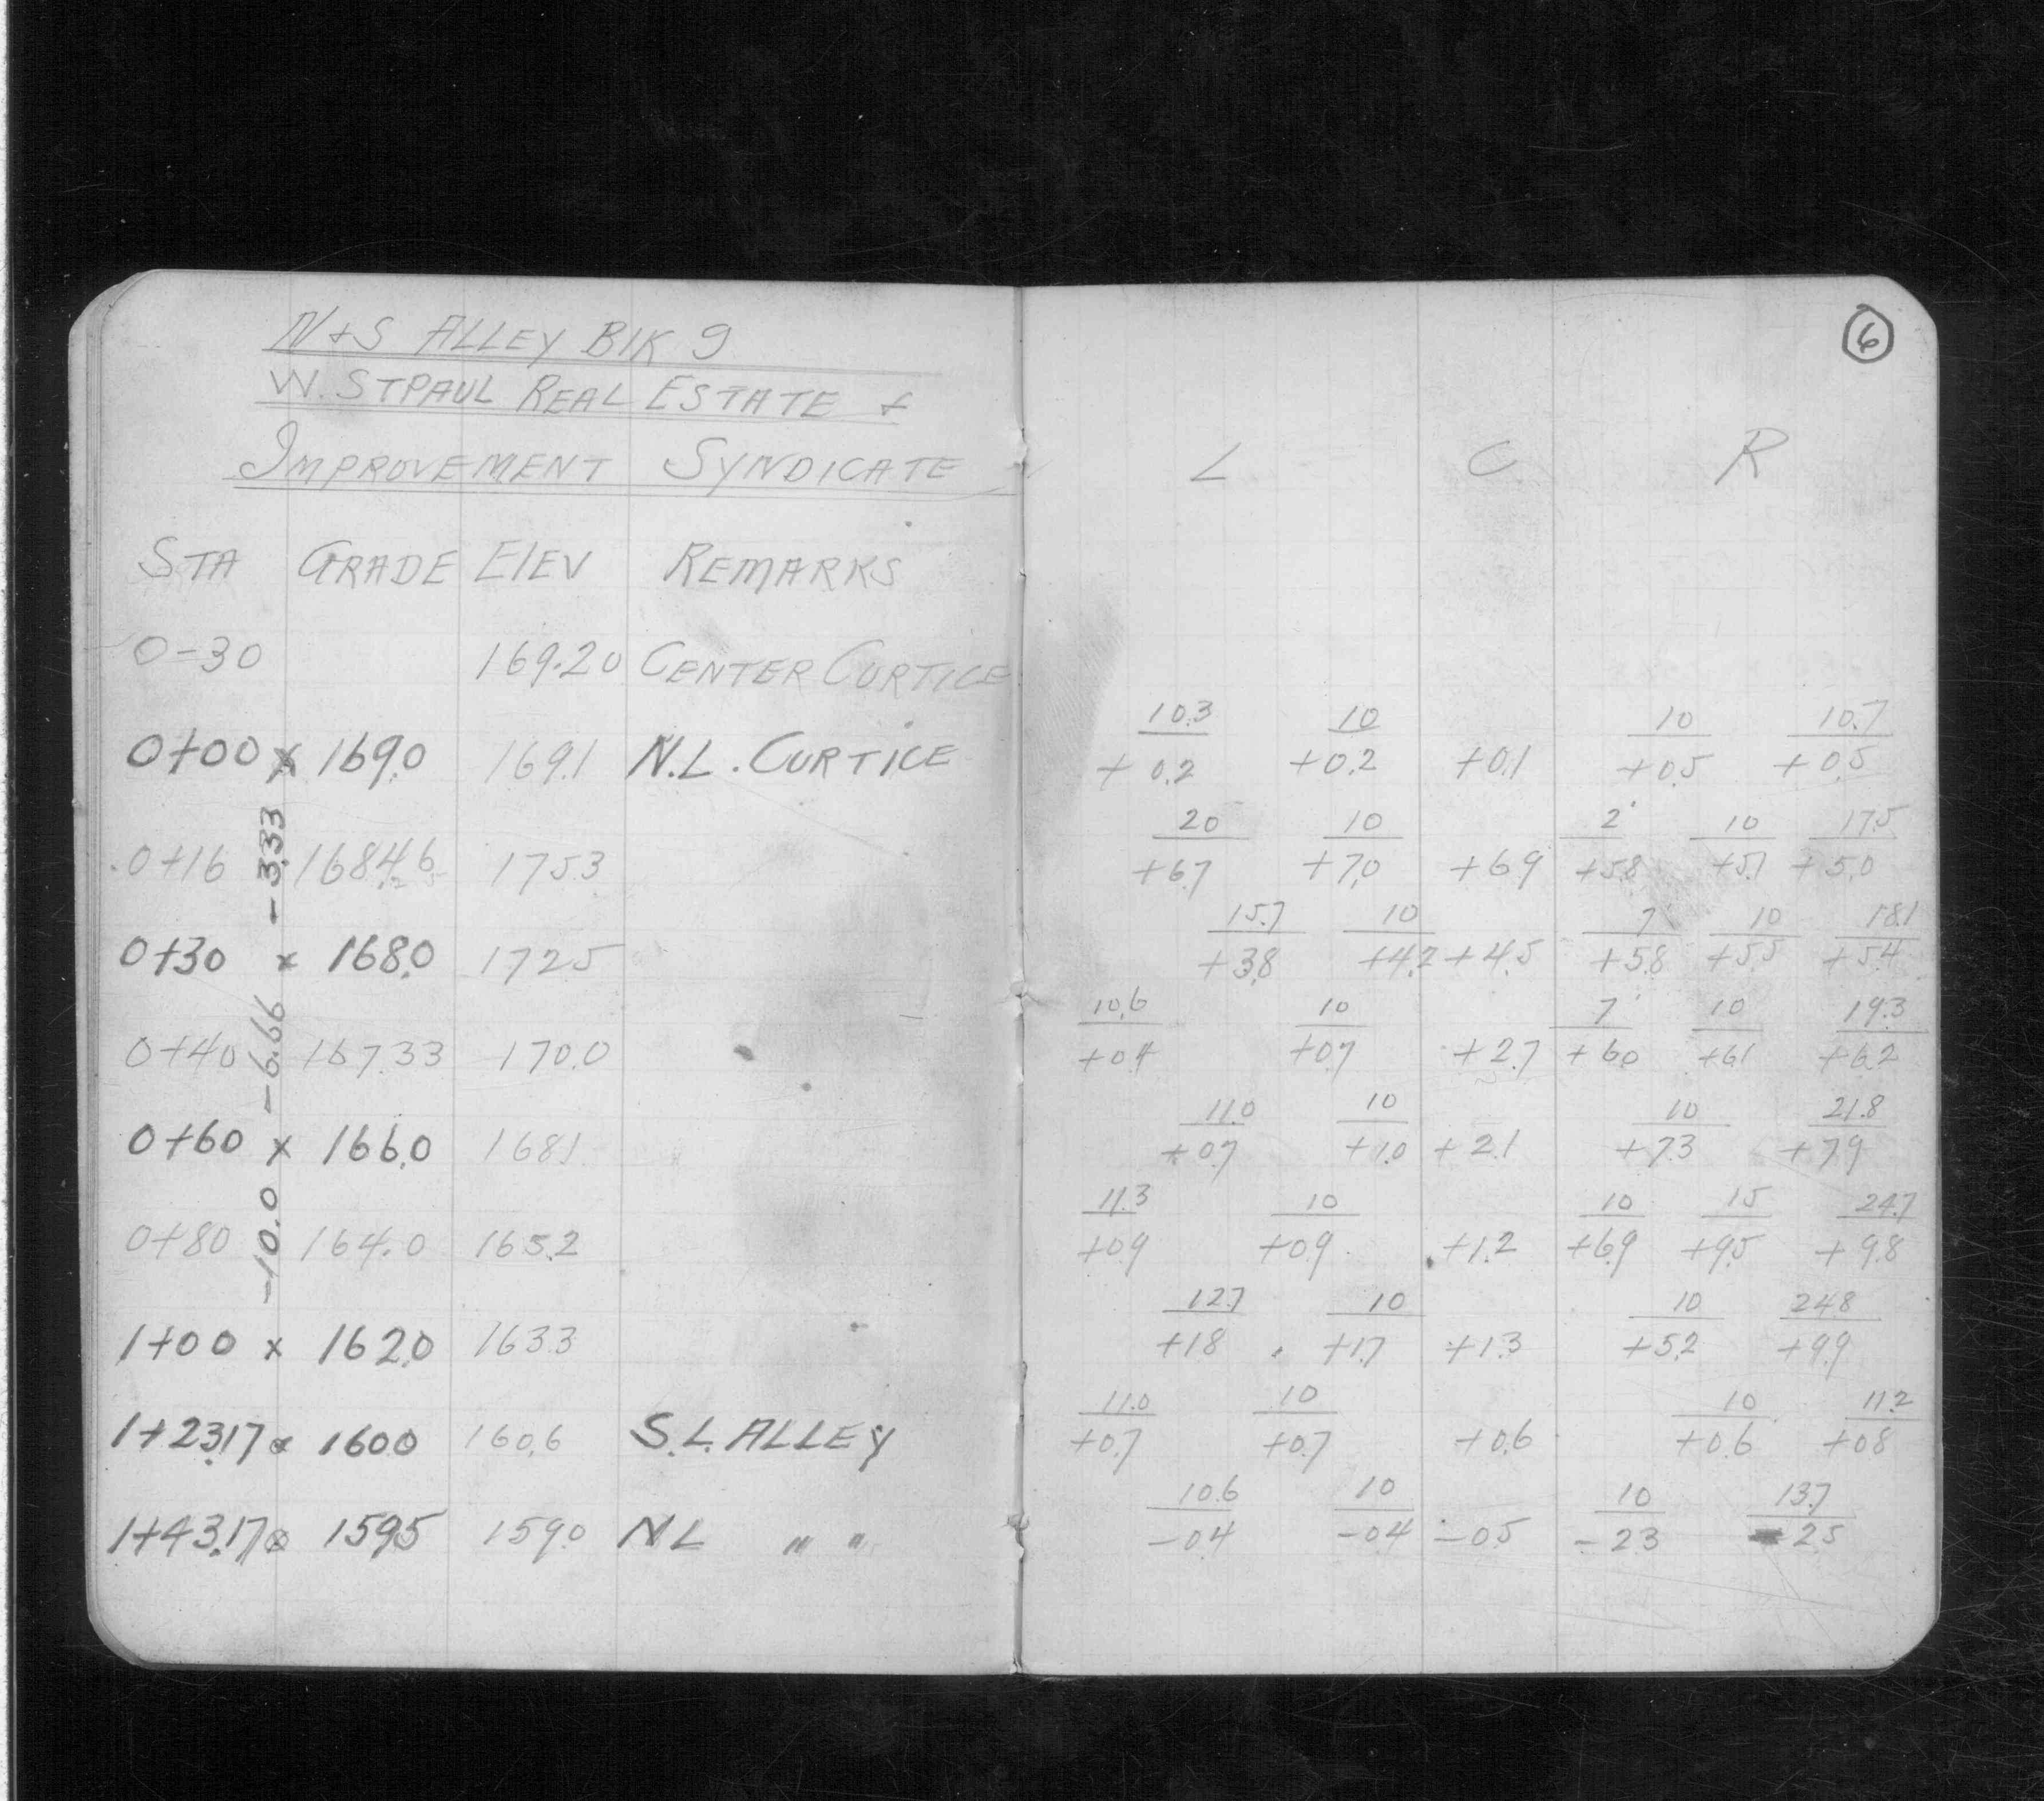 6
N+S ALLEY BlK 9
W. ST PAUL REAL ESTATE +
IMPROVEMENT SYNDICATE
L C R
STA GRADE ElEV REMARKS
0-30 169.20 CENTER CURTICE
10.3 10 10 10.7
0+00 x 169.0 169.1 N.L. CURTICE +0.2 +0.2 +0.1 +0.5 +0.5
-3.33
20 10 2' 10 17.5
0+16 168.46 175.3 +6.7 +7.0 +6.9 +5.8 +5.1 +5.0
15.7 10 7' 10 18.1
0+30 x 168.0 172.5 +3.8 +4.2 +4.5 +5.8 +5.5 +5.4
-6.66
10.6 10 7' 10 19.3
0+40 167.33 170.0 +0.4 +0.7 +2.7 +6.0 +6.1 +6.2
11.0 10 10 21.8
0+60 x 166.0 168.1 +0.7 +1.0 +2.1 +7.3 +7.9
-10.0
11.3 10 10 15 24.7
0+80 164.0 165.2 +0.9 +0.9 +1.2 +6.9 +9.5 +9.8
12.7 10 10 24.8
1+00 x 162.0 163.3 +1.8 +1.7 +1.3 +5.2 +9.9
11.0 10 10 11.2
1+23.17 x 160.0 160.6 S.L. ALLEY +0.7 +0.7 +0.6 +0.6 +0.8
10.6 10 10 13.7
1+43.17 x 159.5 159.0 NL " " -0.4 -0.4 -0.5 -2.3 -2.5